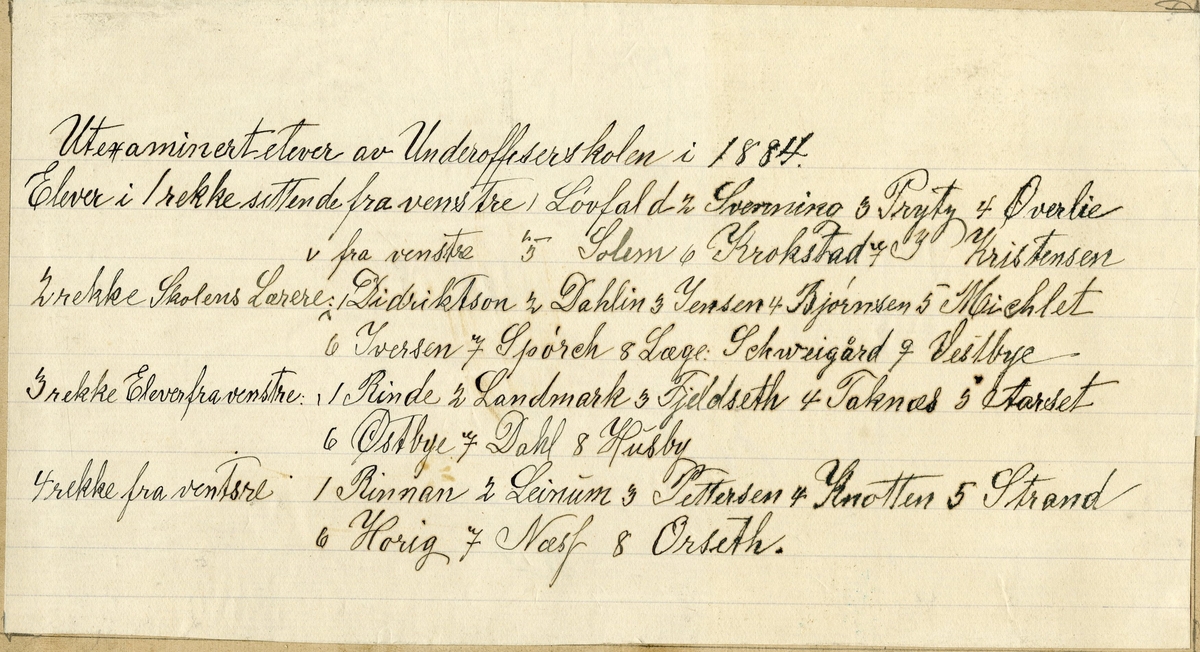 Utexaminert elever av Underoffeserskolen i 1884.
Elever i 1 rekke sittende fra venstre 1 Lövfald 2 Svenning 3 Pryty 4 Överlie
v fra venstre 5 Solem 6 Krokstad 7 Kristensen
2 rekke Skolens Lærere: 1 Didriktson 2 Dahlin 3 Jensen 4 Bjørnsen 5 Michlet
6 Iversen 7 Spörch 8 Læge: Schweigård 9 Vestbye
3 rekke Elever fra venstre: 1 Rinde 2 Landmark 3 Fjeldseth 4 Taknæs 5 Aarset
6 Östbye 7 Dahl 8 Husby
4 rekke fra ventsre 1 Rinnan 2 Leinum 3 Pettersen 4 Knotten 5 Strand
6 Horig 7 Næss 8 Orseth.